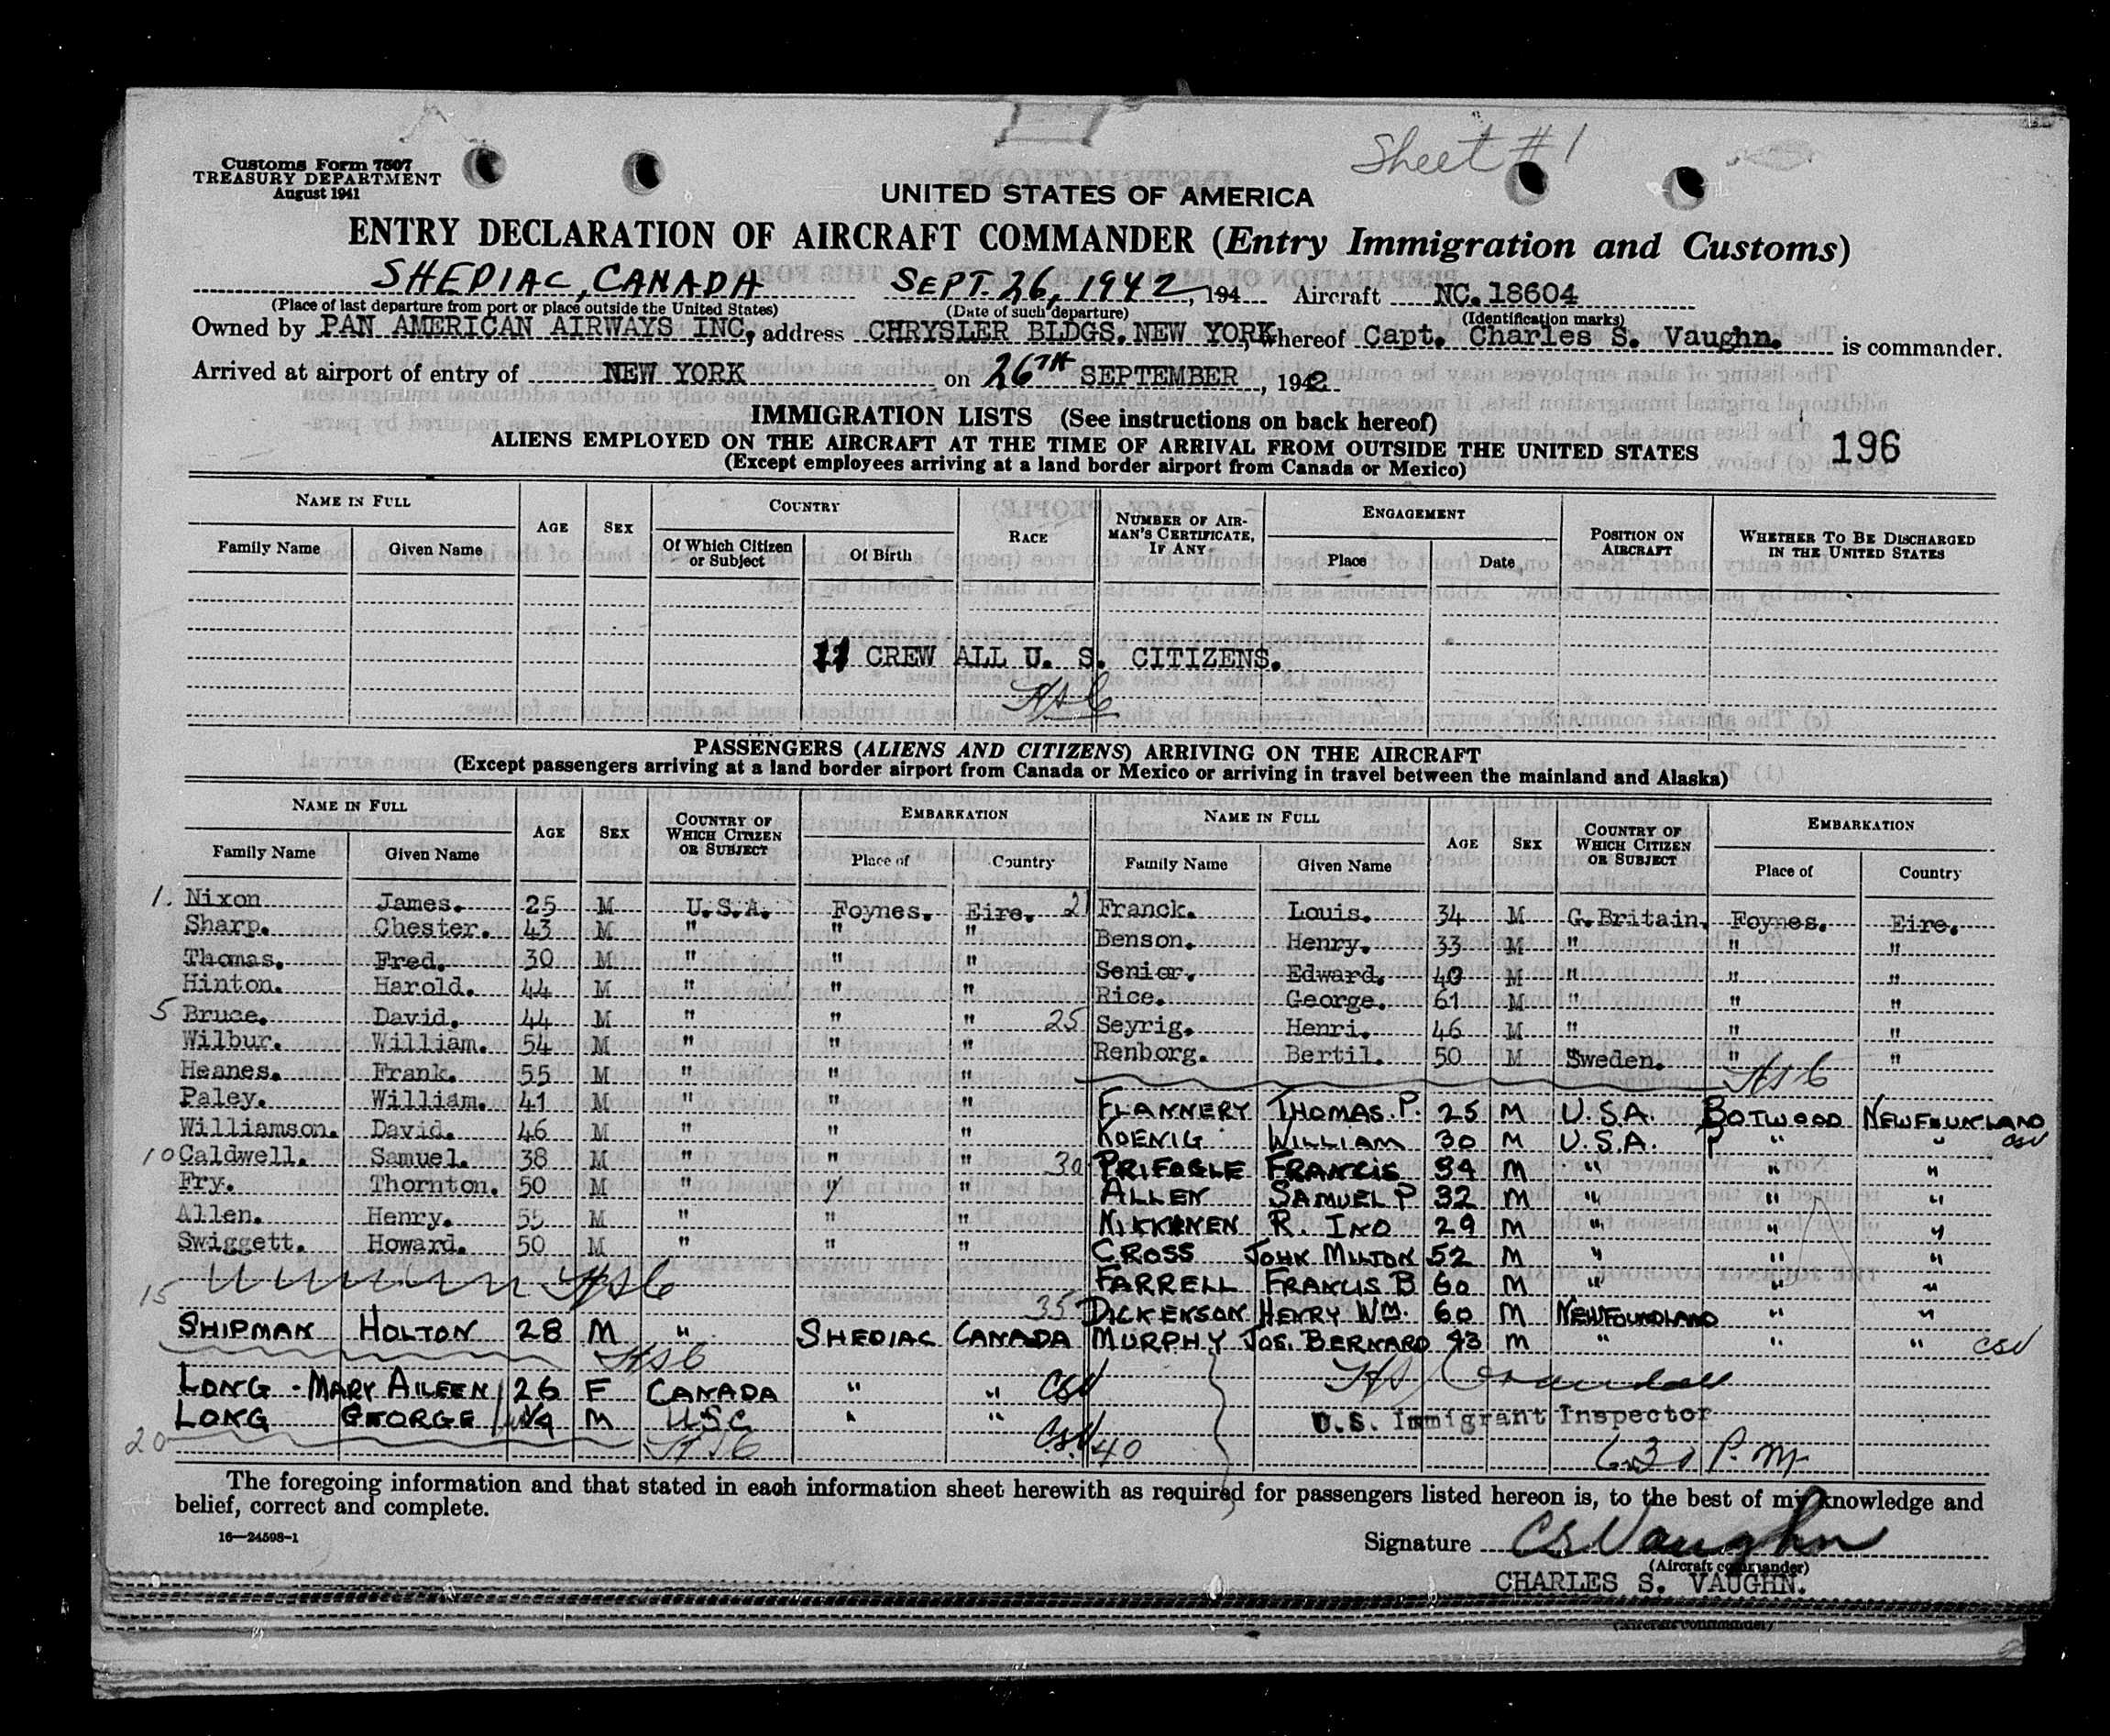 Sheet #1
Customs Form 7507
TREASURY DEPARTMENT
August 1941
UNITED STATES OF AMERICA
ENTRY DECLARATION OF AIRCRAFT COMMANDER (Entry Immigration and Customs)
SHEDIAC, CANADA SEPT. 26, 1942, 194 Aircraft NC. 18604
(Place of last departure from port or place outside the United States) (Date of such departure) (Identification marks)
Owned by PAN AMERICAN AIRWAYS INC, address CHRYSLER BLDGS. NEW YORK, whereof Capt. Charles S. Vaughn. is commander.
Arrived at airport of entry of NEW YORK on 26TH SEPTEMBER, 1942
IMMIGRATION LISTS (See instructions on back hereof)
ALIENS EMPLOYED ON THE AIRCRAFT AT THE TIME OF ARRIVAL FROM OUTSIDE THE UNITED STATES 196
(Except employees arriving at a land border airport from Canada or Mexico)
NAME IN FULL AGE SEX COUNTRY RACE NUMBER OF AIRMAN'S CERTIFICATE, IF ANY ENGAGEMENT POSITION ON AIRCRAFT WHETHER TO BE DISCHARGED IN THE UNITED STATES
Family Name Given Name Of Which Citizen or Subject Of Birth Place Date
11 CREW ALL U. S. CITIZENS.
HSC
PASSENGERS (ALIENS AND CITIZENS) ARRIVING ON THE AIRCRAFT
(Except passengers arriving at a land border airport from Canada or Mexico or arriving in travel between the mainland and Alaska)
NAME IN FULL AGE SEX COUNTRY OF WHICH CITIZEN OR SUBJECT EMBARKATION NAME IN FULL AGE SEX COUNTRY OF WHICH CITIZEN OR SUBJECT EMBARKATION
Family Name Given Name Place of Country Family Name Given Name Place of Country
1. Nixon James. 25 M U.S.A. Foynes. Eire. 21 Franck. Louis. 34 M G.Britain. Foynes. Eire.
Sharp. Chester. 43 M " " " Benson. Henry. 33 M " " "
Thomas. Fred. 30 M " " " Senior. Edward. 40 M " " "
Hinton. Harold. 44 M " " " Rice. George. 61 M " " "
5 Bruce. David. 44 M " " " 25 Seyrig. Henri. 46 M " " "
Wilbur. William. 54 M " " " Renborg. Bertil. 50 M Sweden. " "
Heanes. Frank. 55 M " " " HSC
Paley. William. 41 M " " " FLANNERY THOMAS. P. 25 M U.S.A. BOTWOOD NEWFOUNDLAND
Williamson. David. 46 M " " " KOENIG WILLIAM 30 M U.S.A. " " CSV
10 Caldwell. Samuel. 38 M " " " 30 PRIFOGLE FRANCIS 34 M " " "
Fry. Thornton. 50 M " " " ALLEN SAMUEL P 32 M " " "
Allen. Henry. 55 M " " " NIKKANEN R. INO 29 M " " "
Swiggett. Howard. 50 M " " " CROSS JOHN MILTON 52 M " " "
HSC FARRELL FRANCIS B 60 M " " "
15 35 DICKERSON HENRY WM. 60 M NEWFOUNDLAND " "
SHIPMAN HOLTON 28 M " SHEDIAC CANADA MURPHY JOS. BERNARD 43 M " " " CSV
HSC
LONG - MARY AILEEN 26 F CANADA " " CSV
LONG GEORGE M USC " " U.S. Immigrant Inspector
20 HSC CSV 40 630 P.M.
The foregoing information and that stated in each information sheet herewith as required for passengers listed hereon is, to the best of my knowledge and
belief, correct and complete.
16—24598-1
Signature CS Vaughn
(Aircraft commander)
CHARLES S. VAUGHN.
(Aircraft commander)